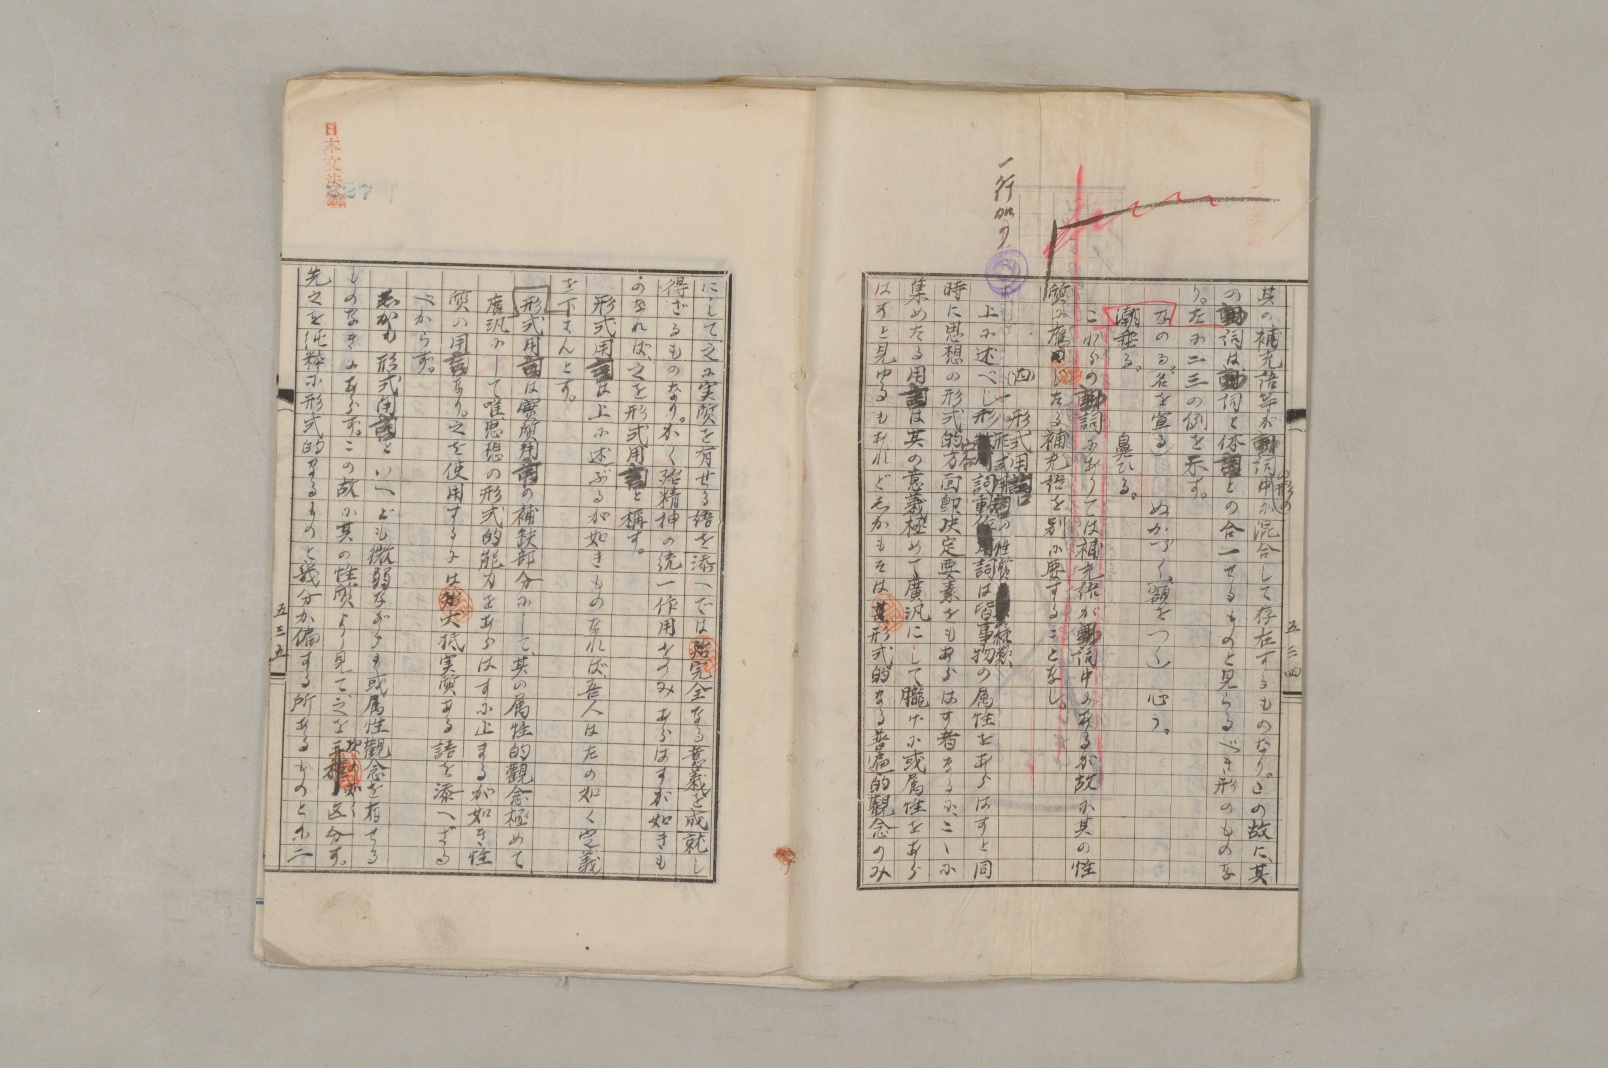 其の補充語等が動詞中に混合して存在するものなり。この故に、其
の動詞は動詞と体言との合一せるものと見らるべき形のものな
り。左に二三の例を示す。
なのる、名を宣る ぬかづく、額をつく 心う。
潮垂る。 鼻ひる。
これらの動詞にありては補充語が動詞中にあるが故に其の性
質に應じたる補充語を別に要することなし。
(四) 形式用言
一行加り
上に述べし形 詞は皆事物の属性をあらはすと同
時に思想の形式的方面即決定要素をもあらはす者なるに、こゝに
集めたる用言は其の意義極めて廣汎にして朧げに或属性をあら
はすと見ゆるもあれどしかもそは其形式的なる普遍的觀念のみ
五三四
日本文法論
227
にして、之に実質を有せる語を添へでは殆完全なる意義を成就し
得ざるものなり。かく殆精神の統一作用をのみあらはすが如きも
のなれば、之を形式用言と稱す。
形式用言は上に述ぶるが如きものなれば、吾人は左の如く定義
を下さんとす。
形式用言は實質用言の補缺部分にして、其の属性的觀念極めて
廣汎にして唯思想の形式的能力をあらはすに止まるが如き性
質の用言なり。之を使用するには大抵実質ある語を添へざる
べからず。
しかも形式用言といへども微弱ながらも或属性觀念を有せる
ものなきにあらず。この故に其の性質より見て之を 区分す。
先之を純粹に形式的なるものと幾分か偏する所あるものとに二
五三五